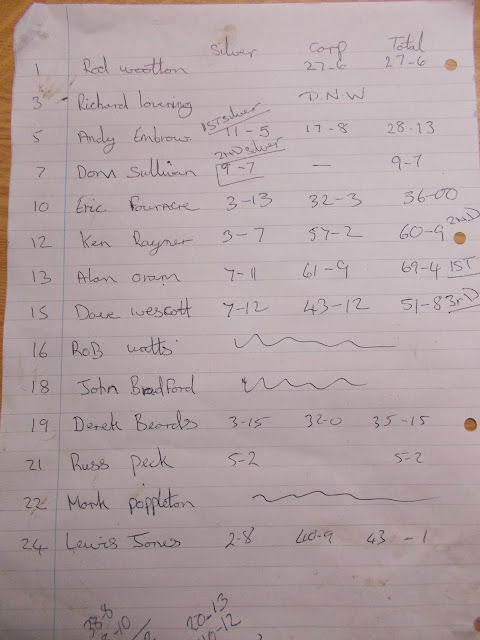 Silver Carp Total
1 Rod wootton 27-6 27-6
3 Richard lovering D.N.W
1ST silver
5 Andy Embrow 11-5 17-8 28-13
2ND silver
7 Dom Sullivan 9-7 — 9-7
10 Eric Fournere 3-13 32-3 36-00
12 Ken Rayner 3-7 57-2 60-9 2ND
13 Alan oram 7-11 61-9 69-4 1ST
15 Dave wescott 7-12 43-12 51-8 3rD
16 RoB watts
18 John Bradford
19 Derek Beards 3-15 32-0 35-15
21 Russ peck 5-2 5-2
22 Mark poppleton
24 Lewis Jones 2-8 40-9 43-1
20-13